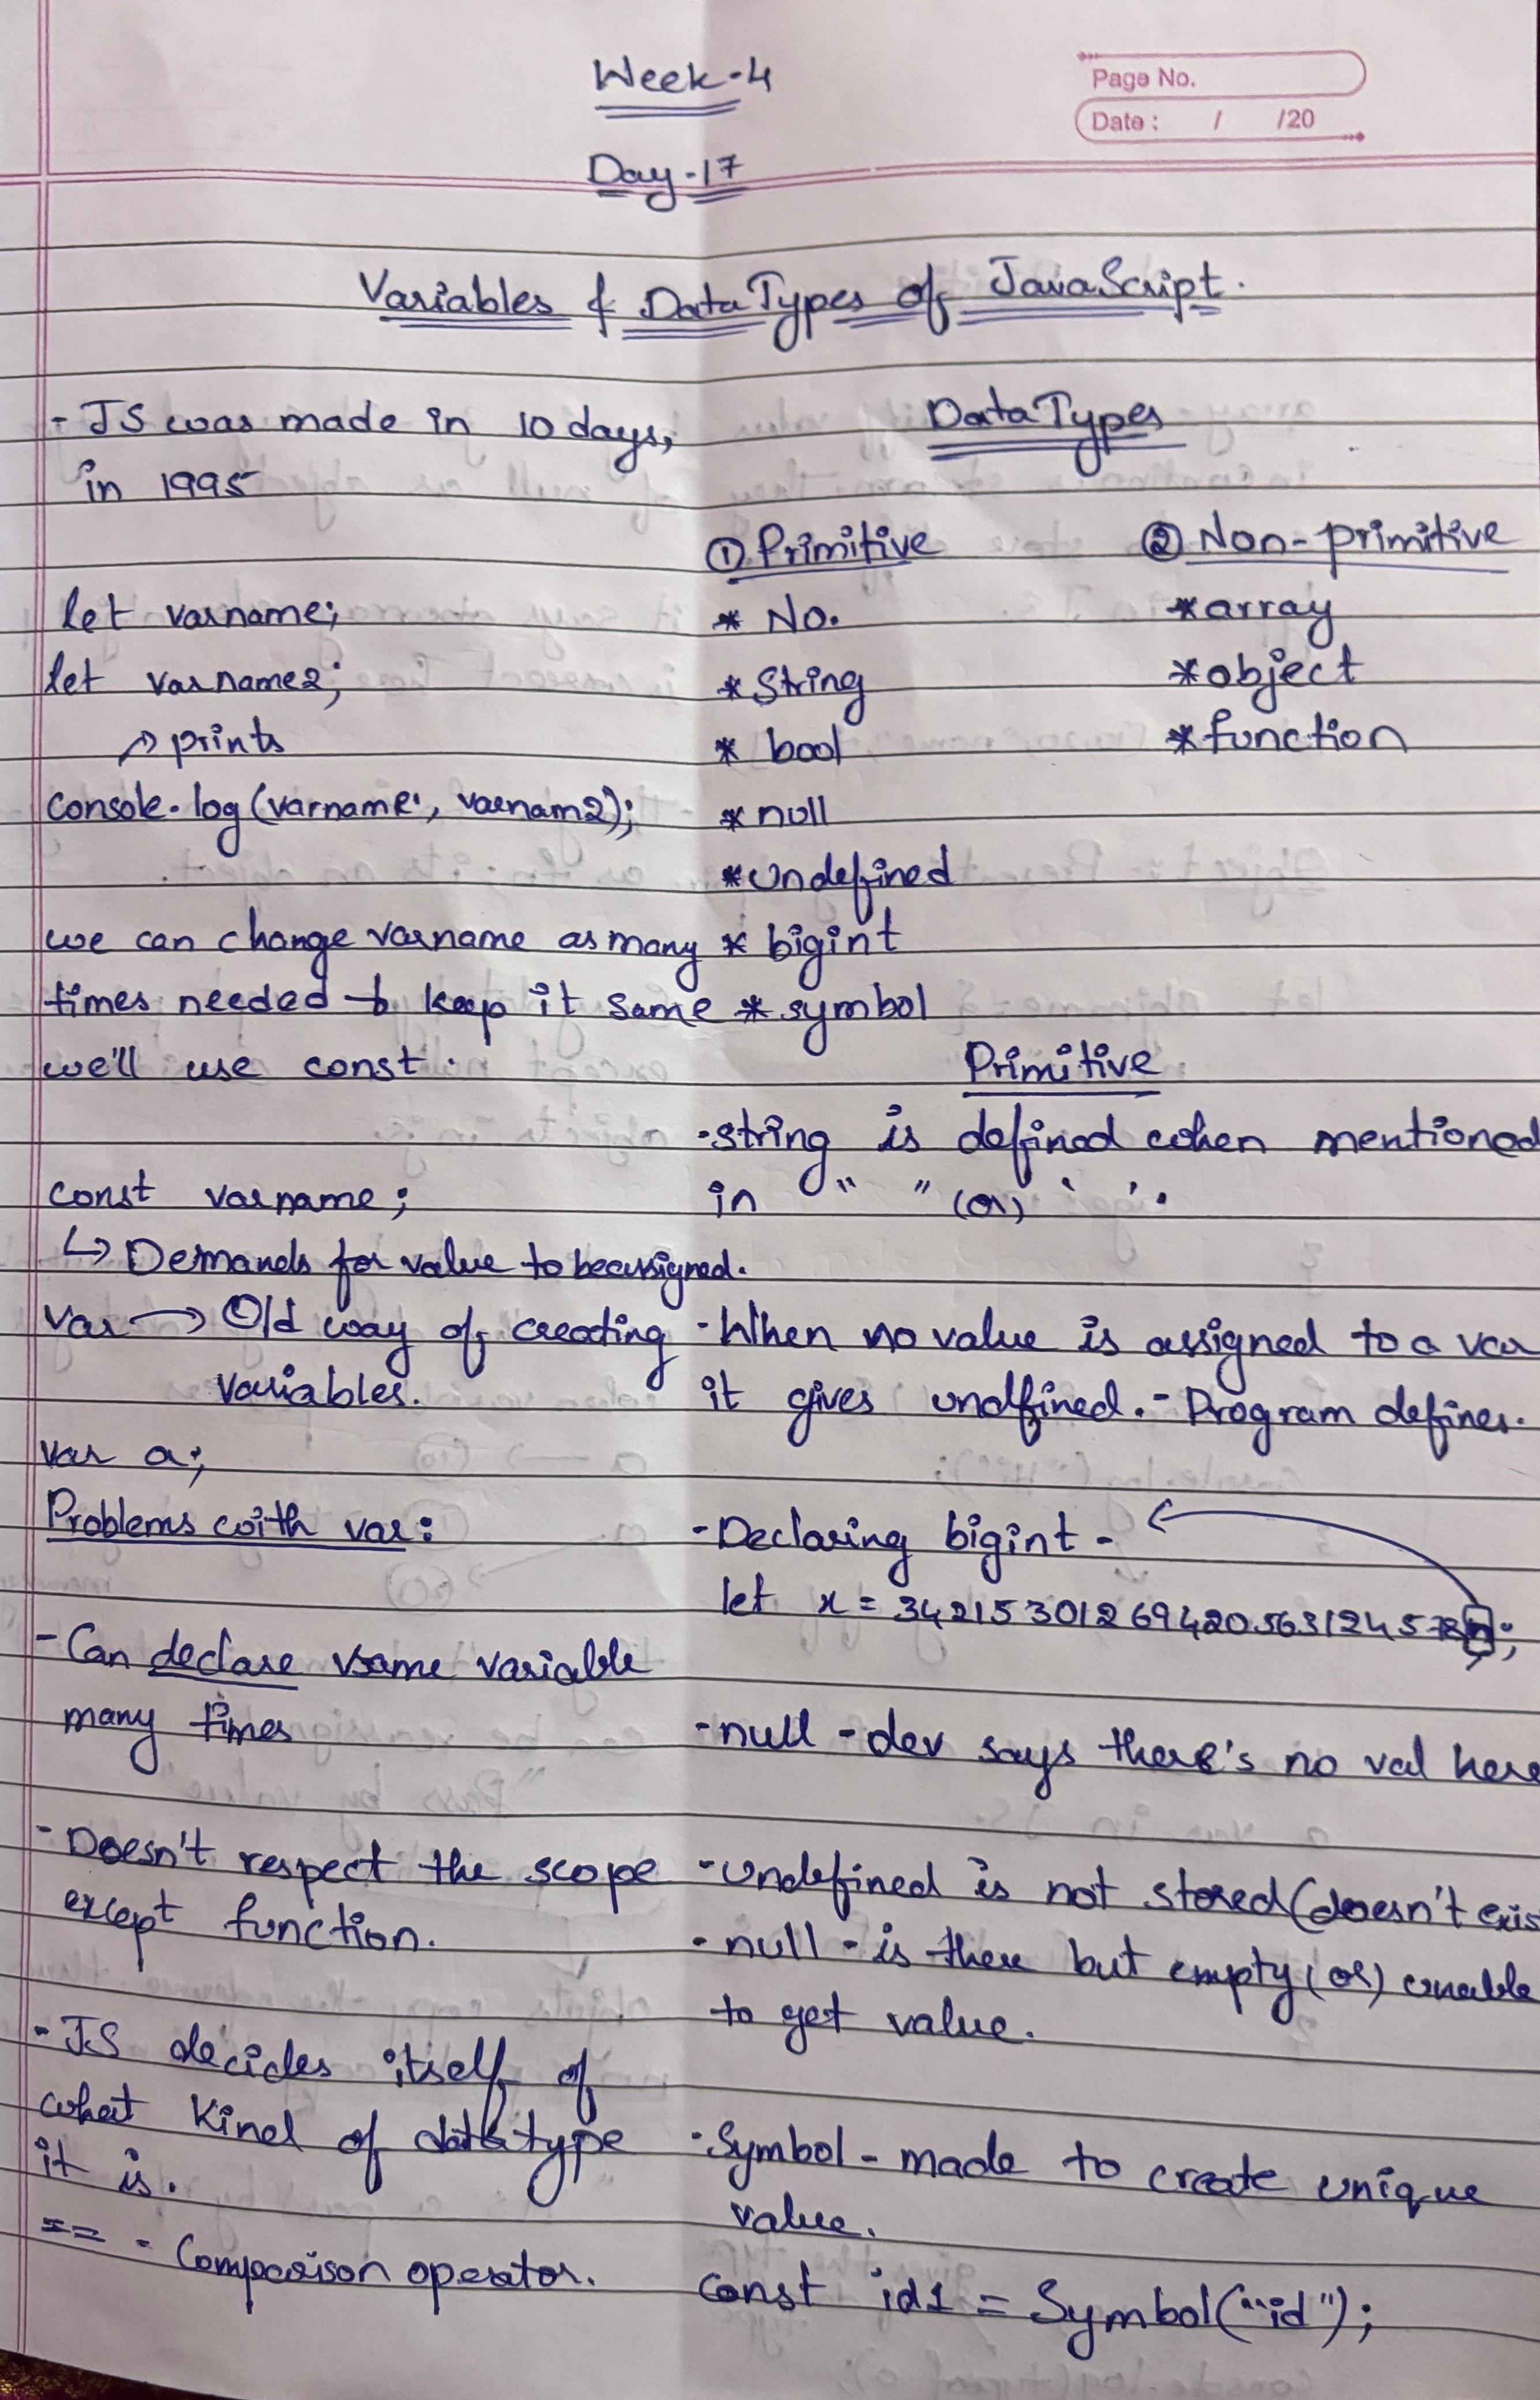 Week-4
Page No.
Date : / /20
Day-17
Variables & DataTypes of JavaScript.
- JS was made in 10 days,
in 1995
let varname;
let varname2;
→ prints
console.log(varname', varnam2);
we can change varname as many
times needed to keep it same
we'll use const.
const varname;
↳ Demands for value to be assigned.
var → Old way of creating
variables.
var a;
Problems with var:
- Can declare same variable
many times
- Doesn't respect the scope
except function.
- JS decides itself of
what kind of datatype
it is.
== - Comparison operator.
DataTypes
① Primitive ② Non-primitive
* No. * array
* String * object
* bool * function
* null
* undefined
* bigint
* symbol
Primitive
- string is defined when mentioned
in " " (or) ' '.
- When no value is assigned to a var
it gives undffined. - Program defines.
- Declaring bigint - ←
let x =
- null - dev says there's no val here
- undefined is not stored (doesn't exis
- null - is there but empty (or) unable
to get value.
- Symbol - made to create unique
value.
const id1 = Symbol("id");